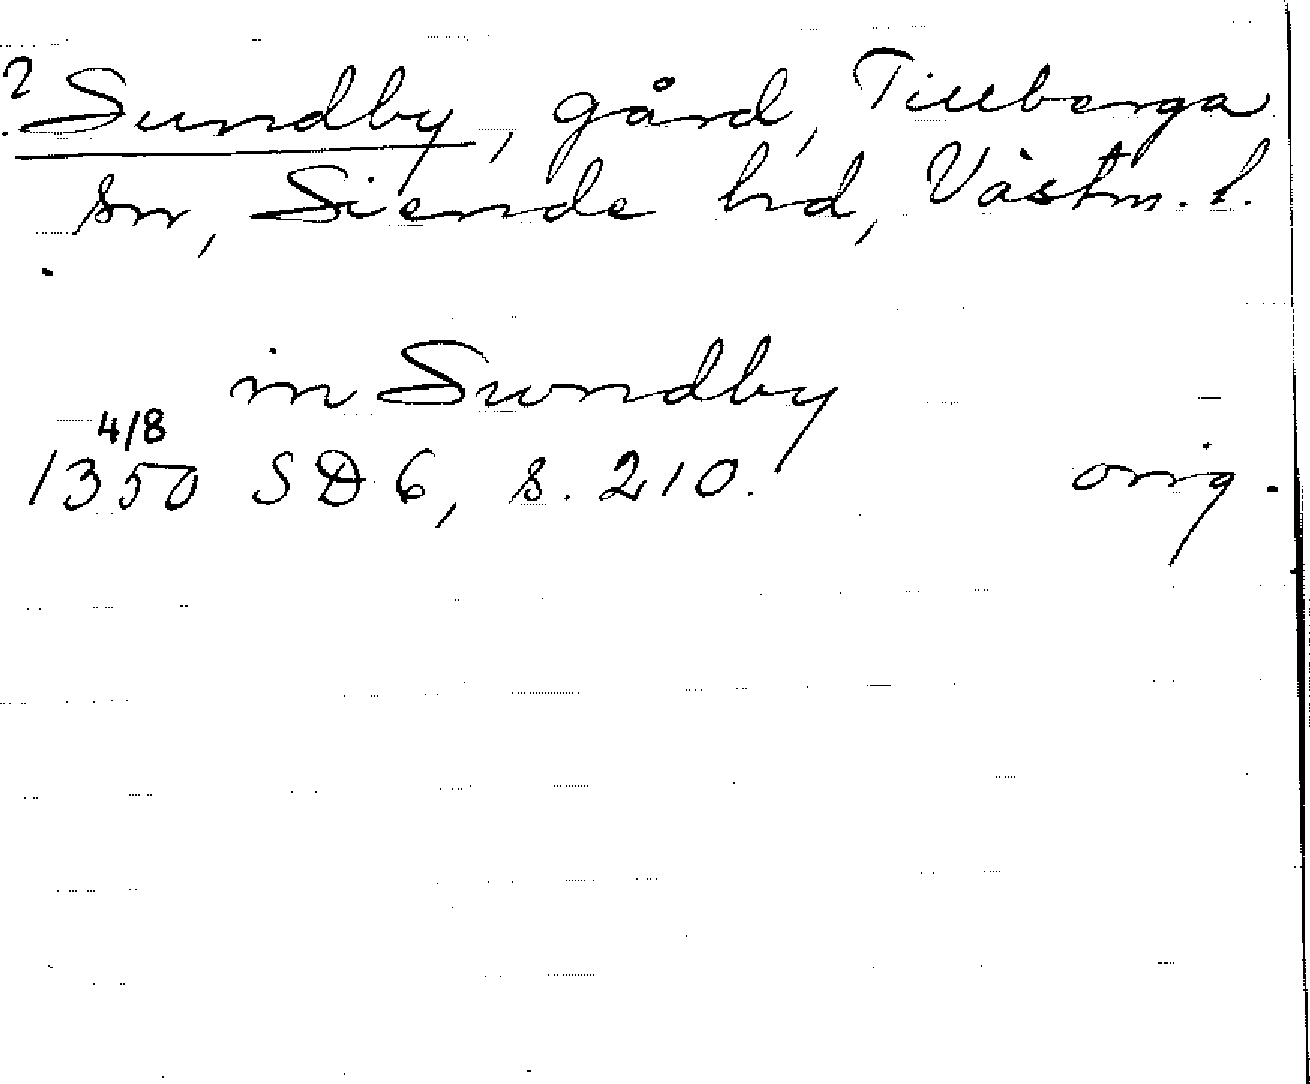 ? Sundby, gård, Tillberga
sn, Siende hd, Västm. l.
in Sundby
4/8
1350 SD 6, s. 210. orig.